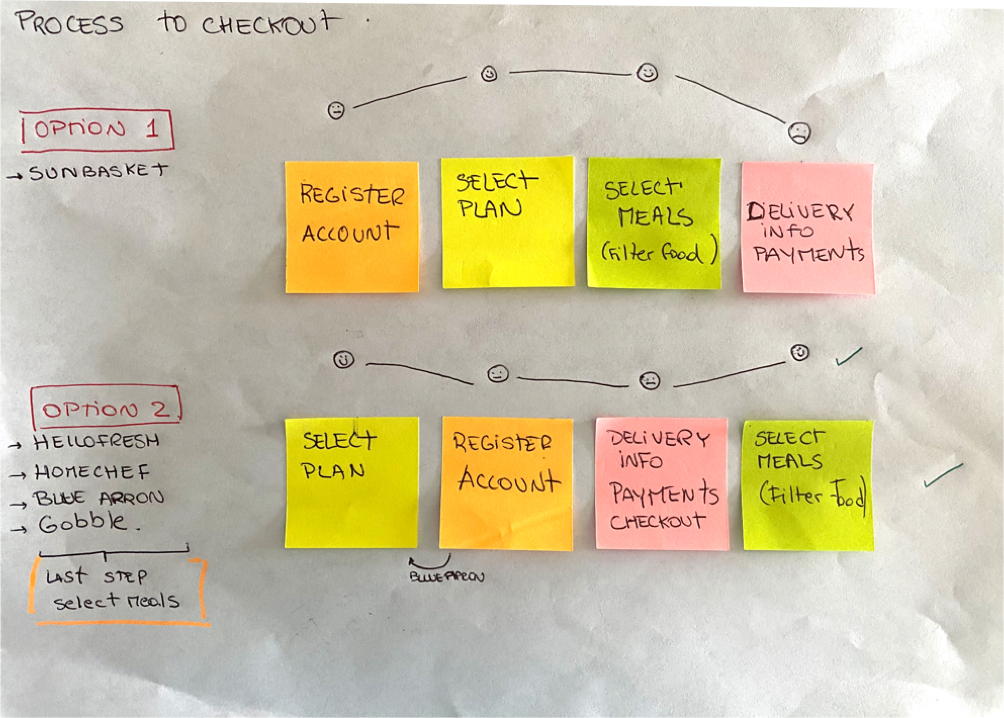 PROCESS to CHECKOUT.
OPTION 1
→ SUNBASKET
REGISTER
ACCOUNT
SELECT
PLAN
SELECT
MEALS
(Filter food)
DELIVERY
INFO
PAYMENTS
OPTION 2
→ HELLOFRESH
→ HOMECHEF
→ BLUE ARRON
→ Gobble.
LAST STEP
select Meals
SELECT
PLAN
REGISTER
ACCOUNT
DELIVERY
INFO
PAYMENTS
CHECKOUT
SELECT
MEALS
(Filter Food)
BLUE ARRON